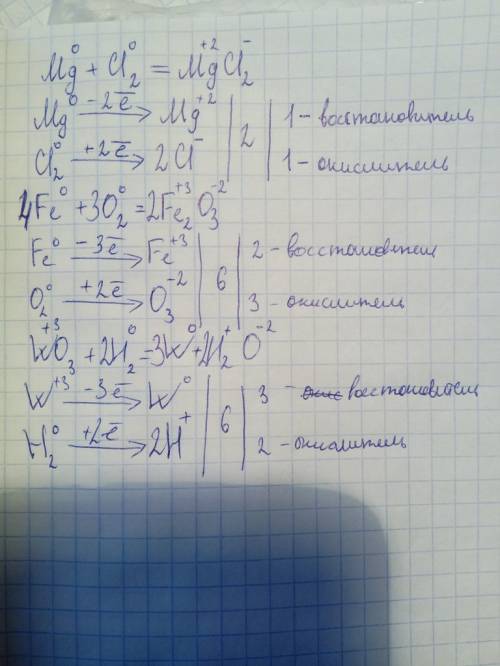 Mg⁰ + Cl₂⁰ = Mg⁺² Cl₂⁻
Mg⁰ —−2e̅→ Mg⁺² | 2 | 1 – восстановитель
Cl₂⁰ —+2e̅→ 2Cl⁻ | 1 – окислитель
4Fe⁰ + 3O₂⁰ = 2Fe₂⁺³ O₃⁻²
Fe⁰ —−3e̅→ Fe⁺³ | 6 | 2 – восстановител
O₂⁰ —+2e̅→ O₃⁻² | 3 – окислитель
W⁺³O₃ + 2H₂⁰ = 3W⁰ + 2H₂⁺ O⁻²
W⁺³ —−3e̅→ W⁰ | 6 | 3 – восстановител
H₂⁰ —+2e̅→ 2H⁺ | 2 – окислитель